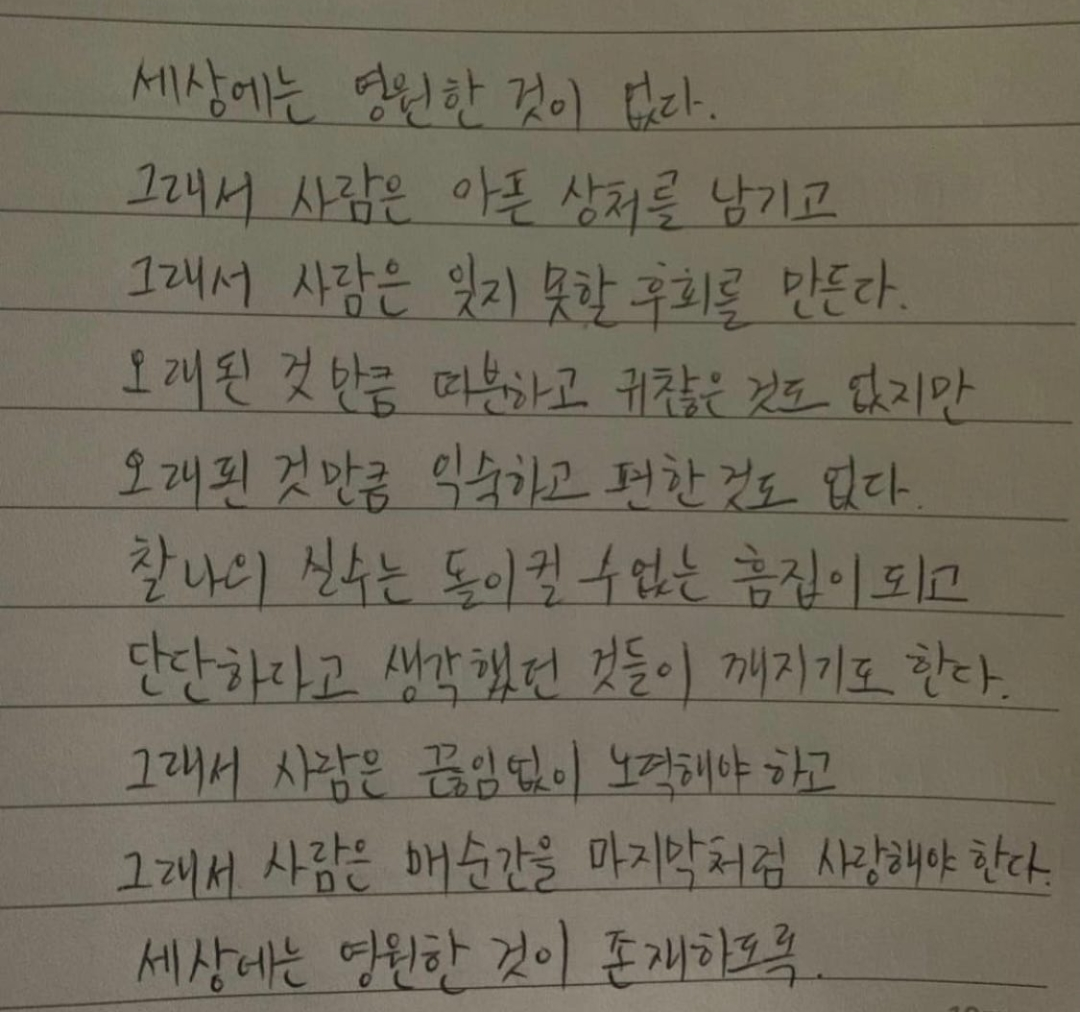 세상에는 영원한 것이 없다.
그래서 사람은 아픈 상처를 남기고
그래서 사람은 잊지 못할 후회를 만든다.
오래된 것 만큼 따분하고 귀찮은 것도 없지만
오래된 것만큼 익숙하고 편한것도 없다.
찰나의 실수는 돌이킬 수없는 흠집이 되고
단단하다고 생각했던 것들이 깨지기도 한다.
그래서 사람은 끊임없이 노력해야 하고
그래서 사람은 매순간을 마지막처럼 사랑해야 한다.
세상에는 영원한 것이 존재하도록.